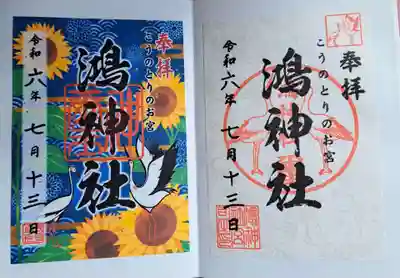 奉拝
こうのとりのお宮
鴻神社
令和六年 七月十三日
奉拝
こうのとりのお宮
鴻神社
令和六年 七月十三日